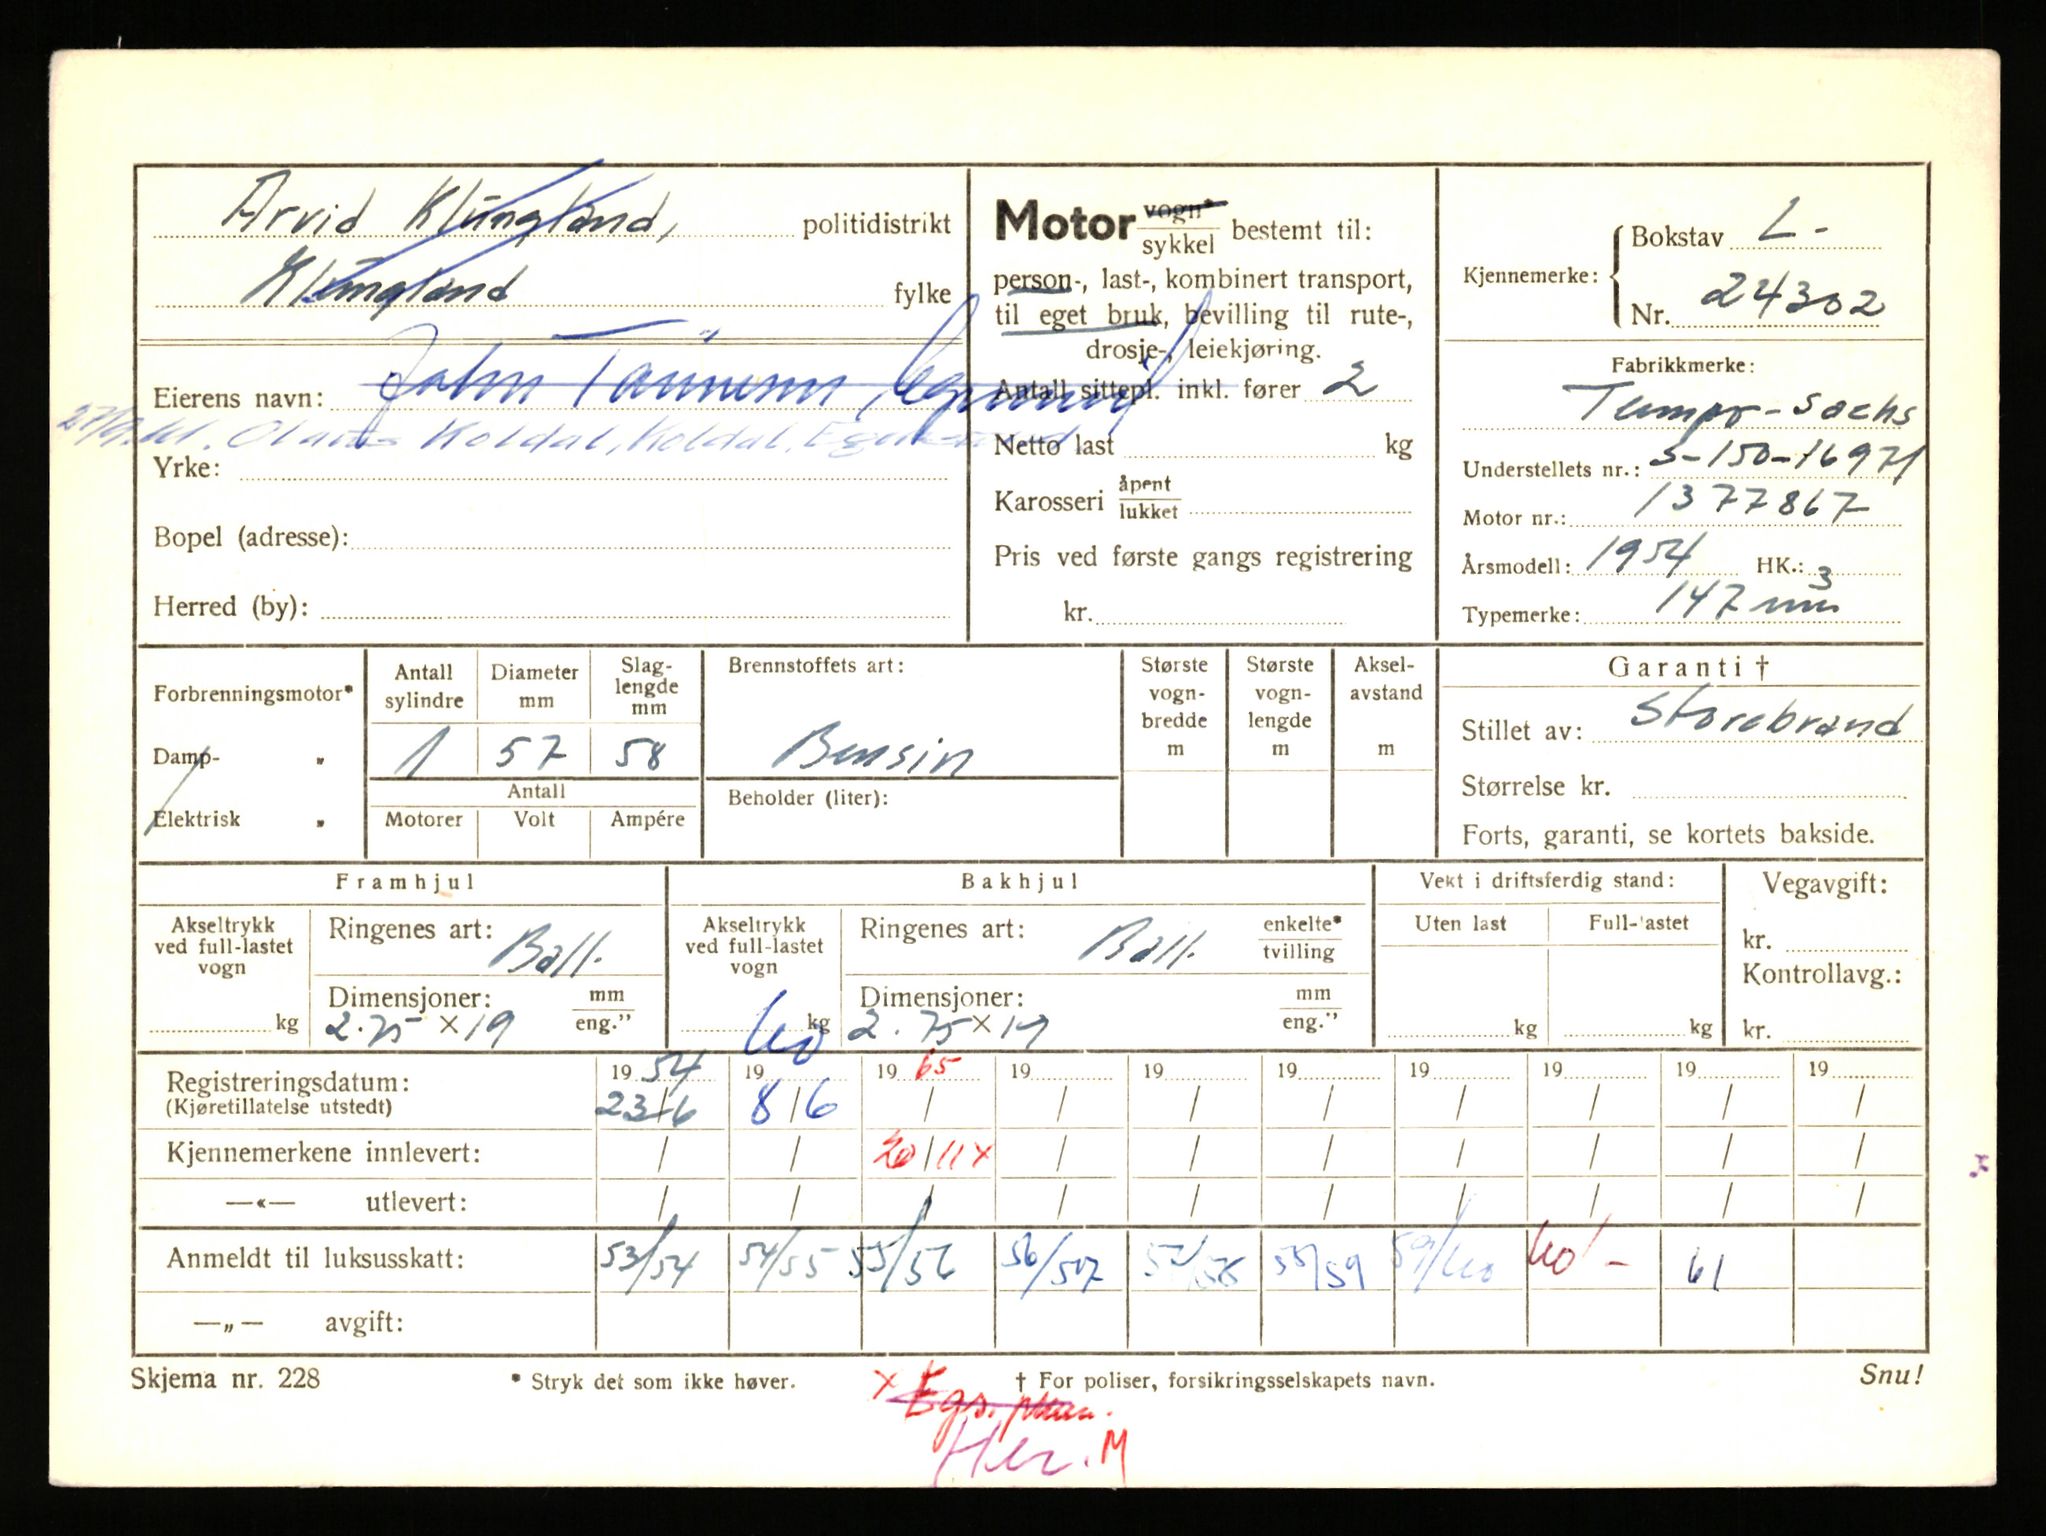 Arvid Klungland, politidistrikt
Klungland fylke
Eierens navn: John
Olaus Koldal, Koldal, Egersund
Yrke:
Bopel (adresse):
Herred (by):
Motor vogn* sykkel bestemt til:
person-, last-, kombinert transport,
til eget bruk, bevilling til rute-,
drosje-, leiekjøring.
Antall sittepl. inkl. fører 2
Netto last kg
Karosseri åpent lukket
Pris ved første gangs registrering
kr.
Kjennemerke: Bokstav L-
Nr. 24302
Fabrikkmerke:
Tempo-Sachs
Understellets nr.: S-150-16971
Motor nr.: 1377867
Årsmodell: 1954 HK.:
Typemerke: 147 mm3
Forbrenningsmotor*
Damp- "
Elektrisk "
Antall sylindre Diameter mm Slag-lengde mm
1 57 58
Antall
Motorer Volt Ampére
Brennstoffets art:
Bensin
Beholder (liter):
Største vogn-bredde m
Største vogn-lengde m
Aksel-avstand m
Garanti †
Stillet av: Storebrand
Størrelse kr.
Forts, garanti, se kortets bakside.
Framhjul
Akseltrykk ved full-lastet vogn kg
Ringenes art: Ball.
Dimensjoner: mm eng."
2.75 × 19
Bakhjul
Akseltrykk ved full-lastet vogn kg
Ringenes art: Ball. enkelte* tvilling
Dimensjoner: mm eng."
2.75 × 19
Vekt i driftsferdig stand:
Uten last Full-lastet
kg kg
Vegavgift:
kr.
Kontrollavg.:
kr.
Registreringsdatum: 19 54 19 60 19 65 19 19 19 19 19 19 19
(Kjøretillatelse utstedt) 23/6 8/6 / / / / / / / /
Kjennemerkene innlevert: / / 20/11 x / / / / / / /
—«— utlevert: / / / / / / / / / /
Anmeldt til luksusskatt: 53/54 54/55 55/56 56/57 57/58 58/59 59/60 60/- 61
—„— avgift:
Skjema nr. 228 * Stryk det som ikke høver. † For poliser, forsikringsselskapets navn. Snu!
x Egs.
Her. M